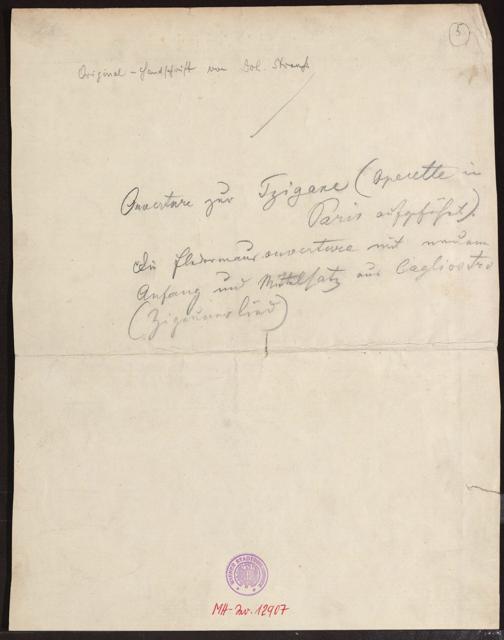 5
Original-Handschrift von Joh. Strauß
Ouverture zur Tzigane (Operette in
Paris aufgeführt).
Die Fledermausouverture mit neuem
Anfang und Mittelsatz aus Cagliostro
(Zigeunerlied)
MH-Inv. 12907